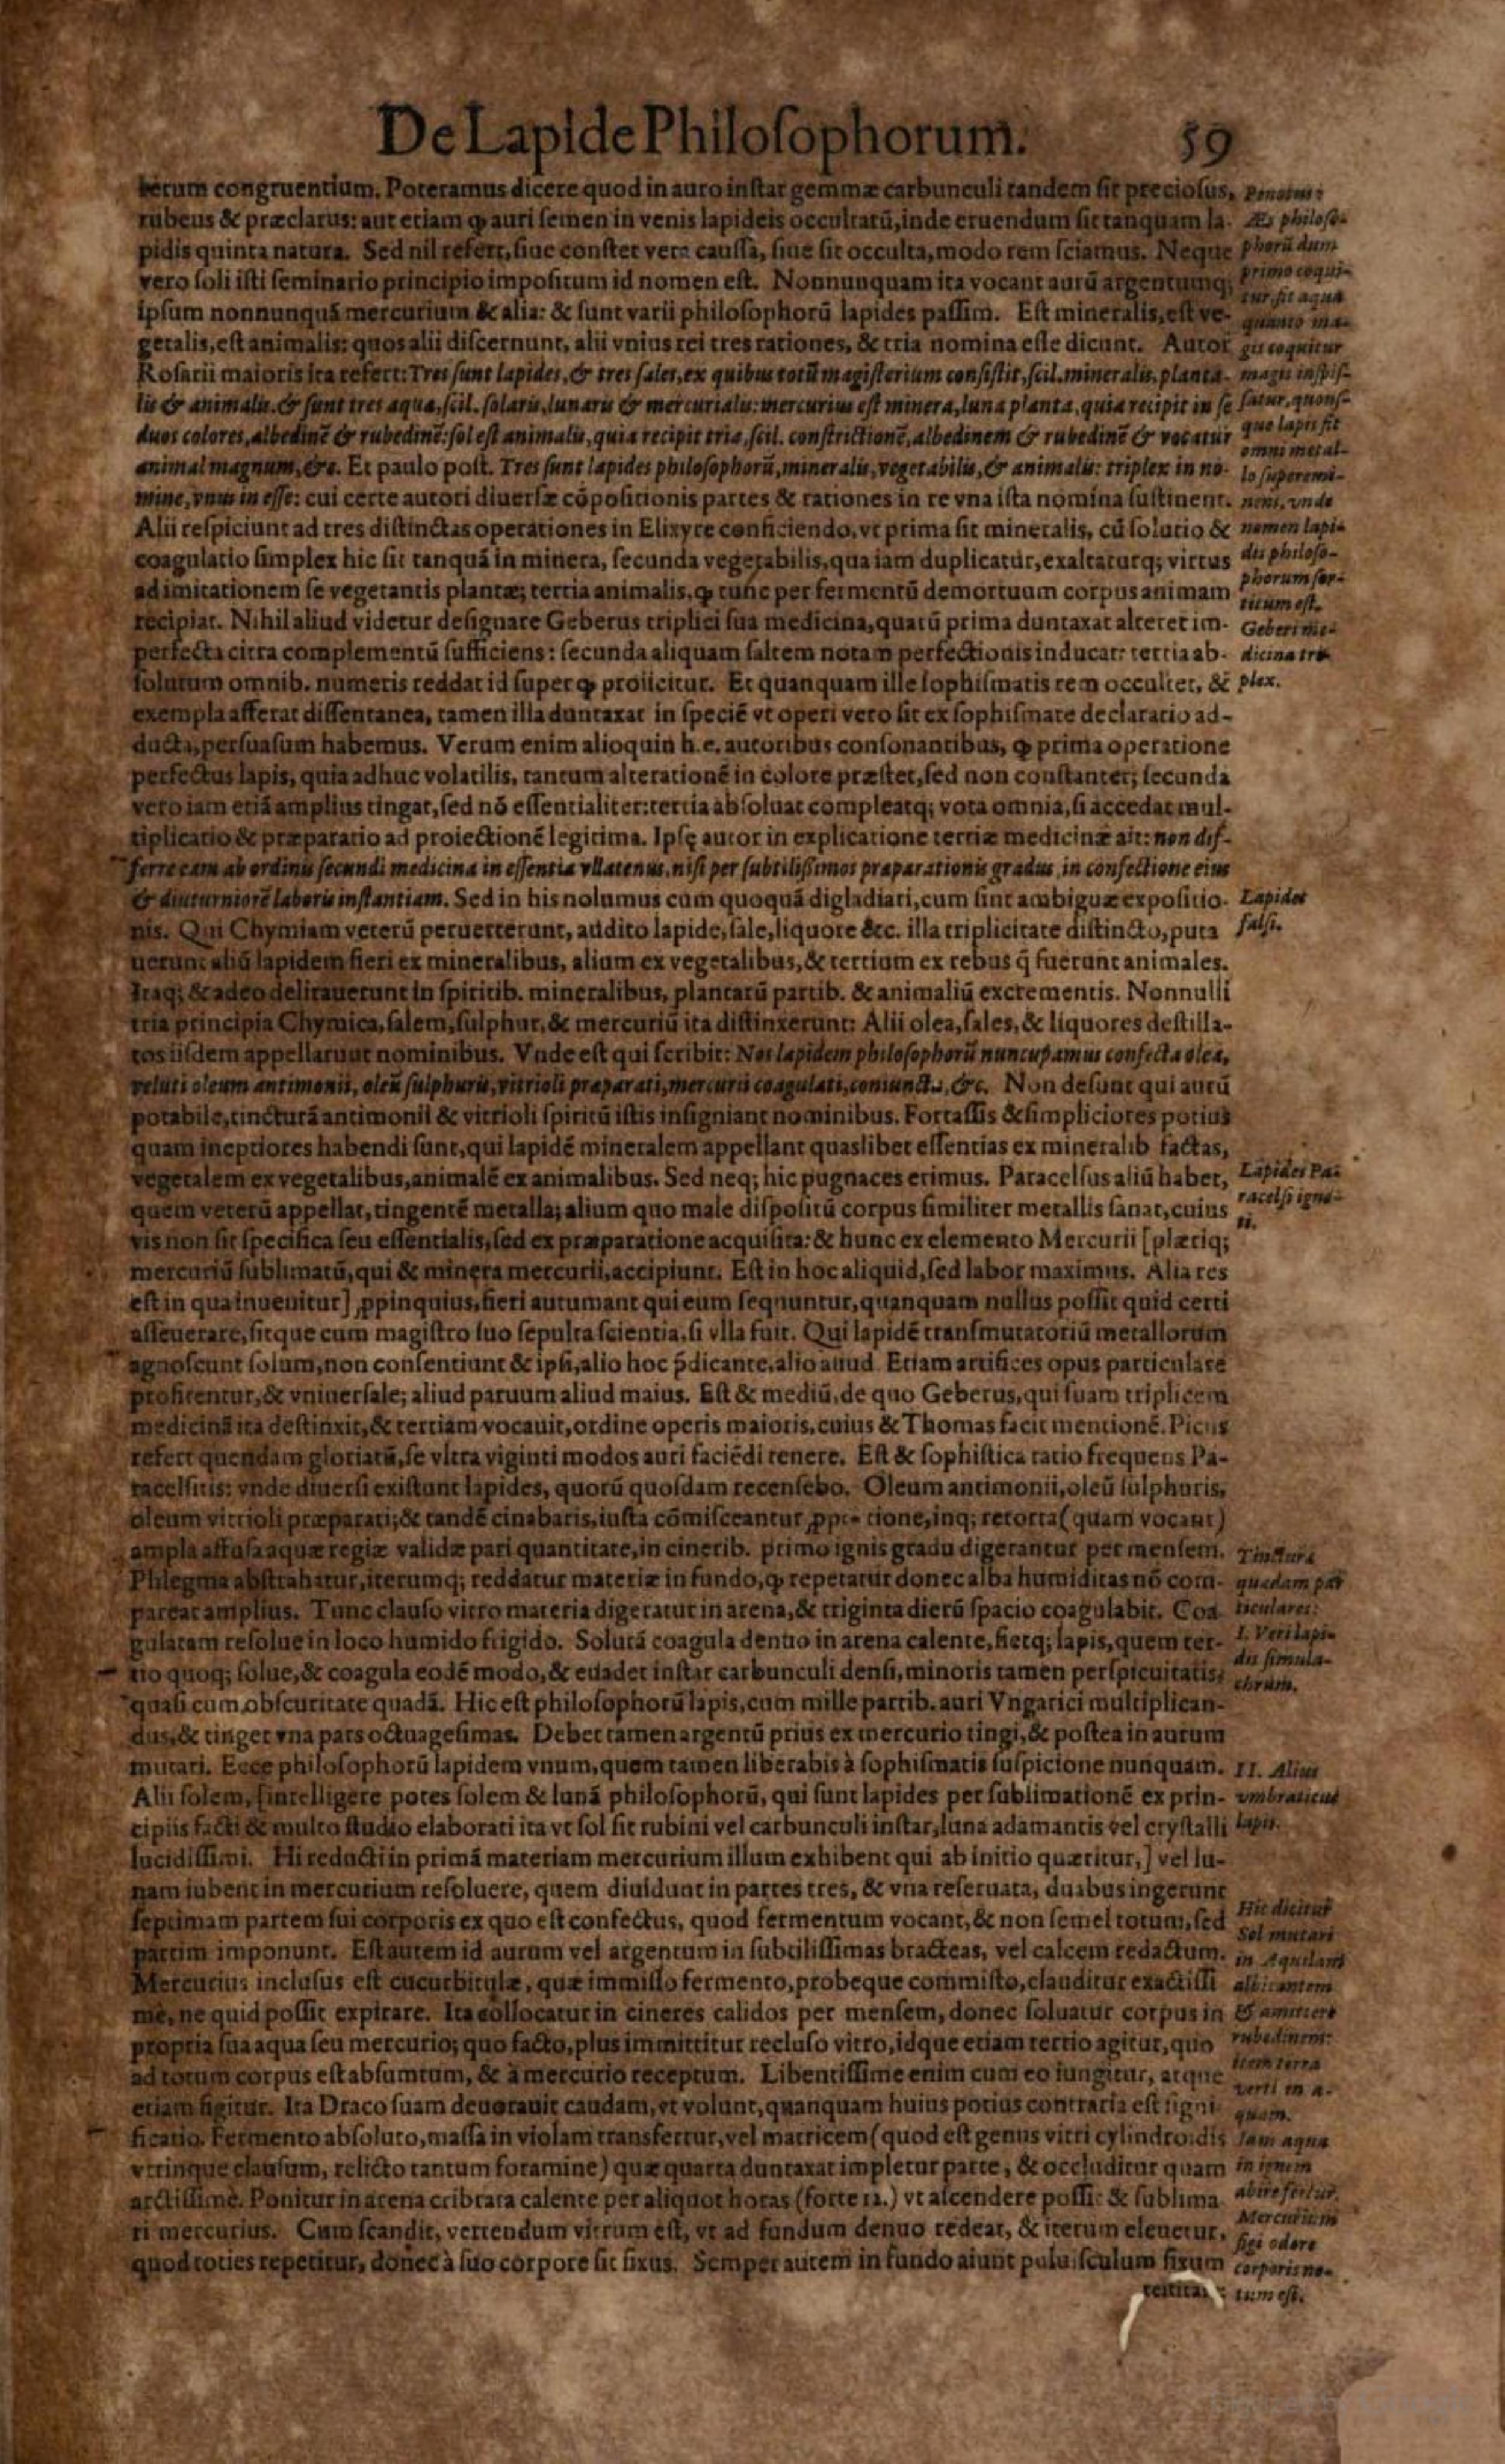 De Lapide Philoſophorum. 59
berum congruentium. Poteramus dicere quod in auro inſtar gemmæ carbunculi tandem fit precioſus,
rubeus & præclarus: aut etiam ꝙ auri ſemen in venis lapideis occultatū, inde eruendum ſit tanquam la-
pidis quinta natura. Sed nil refert, ſiue conſtet vera cauſſa, ſiue ſit occulta, modo rem ſciamus. Neque
vero ſoli iſti ſeminario principio impoſitum id nomen eſt. Nonnunquam ita vocant aurū argentumq;
ipſum nonnunquā mercurium & alia: & ſunt varii philoſophorū lapides paſſim. Eſt mineralis, eſt ve-
getalis, eſt animalis: quos alii diſcernunt, alii vnius rei tres rationes, & tria nomina eſſe dicunt. Autor
Roſarii maioris ita refert: Tres ſunt lapides, & tres ſales, ex quibus totū magiſterium conſiſtit, ſcil. mineralis, planta-
lis & animalis. & ſunt tres aquæ, ſcil. ſolaris, lunaris & mercurialis: mercurius eſt minera, luna planta, quia recipit in ſe
duos colores, albedinē & rubedinē: ſol eſt animalis, quia recipit tria, ſcil. conſtrictionē, albedinem & rubedinē & vocatur
animal magnum, &c. Et paulo poſt. Tres ſunt lapides philoſophorū, mineralis, vegetabilis, & animalis: triplex in no-
mine, vnus in eſſe: cui certe autori diuerſæ cōpoſitionis partes & rationes in re vna iſta nomina ſuſtinent.
Alii reſpiciunt ad tres diſtinctas operationes in Elixyre conficiendo, vt prima ſit mineralis, cū ſolutio &
coagulatio ſimplex hic ſit tanquā in minera, ſecunda vegetabilis, qua iam duplicatur, exaltaturq; virtus
ad imitationem ſe vegetantis plantæ; tertia animalis, ꝙ tunc per fermentū demortuum corpus animam
recipiat. Nihil aliud videtur deſignare Geberus triplici ſua medicina, quarū prima duntaxat alteret im-
perfecta citra complementū ſufficiens: ſecunda aliquam ſaltem notam perfectionis inducat: tertia ab-
ſolutum omnib. numeris reddat id ſuper ꝙ proiicitur. Et quanquam ille ſophiſmatis rem occultet, &
exempla afferat diſſentanea, tamen illa duntaxat in ſpeciē vt operi vero ſit ex ſophiſmate declaratio ad-
ducta, perſuaſum habemus. Verum enim alioquin h.e. autoribus conſonantibus, ꝙ prima operatione
perfectus lapis, quia adhuc volatilis, tantum alterationē in colore præſtet, ſed non conſtanter; ſecunda
vero iam etiā amplius tingat, ſed nō eſſentialiter: tertia abſoluat compleatq; vota omnia, ſi accedat mul-
tiplicatio & præparatio ad proiectionē legitima. Ipſe autor in explicatione tertiæ medicinæ ait: non dif-
ferre eam ab ordinis ſecundi medicina in eſſentia vllatenus, niſi per ſubtiliſſimos præparationis gradus, in confectione eius
& diuturniorē laboris inſtantiam. Sed in his nolumus cum quoquā digladiari, cum ſint ambiguæ expoſitio-
nis. Qui Chymiam veterū peruerterunt, audito lapide, ſale, liquore &c. illa triplicitate diſtincto, puta
uerunt aliū lapidem fieri ex mineralibus, alium ex vegetalibus, & tertium ex rebus q̄ fuerunt animales.
Itaq; & adeo delirauerunt in ſpiritib. mineralibus, plantarū partib. & animaliū excrementis. Nonnulli
tria principia Chymica, ſalem, ſulphur, & mercuriū ita diſtinxerunt: Alii olea, ſales, & liquores deſtilla-
tos iiſdem appellarunt nominibus. Vnde eſt qui ſcribit: Nos lapidem philoſophorū nuncupamus confecta olea,
veluti oleum antimonii, oleū ſulphuris, vitrioli præparati, mercurii coagulati, coniuncta, &c. Non deſunt qui aurū
potabile, tincturā antimonii & vitrioli ſpiritū iſtis inſigniant nominibus. Fortaſſis & ſimpliciores potius
quam ineptiores habendi ſunt, qui lapidē mineralem appellant quaslibet eſſentias ex mineralib factas,
vegetalem ex vegetalibus, animalē ex animalibus. Sed neq; hic pugnaces erimus. Paracelſus aliū habet,
quem veterū appellat, tingentē metalla; alium quo male diſpoſitū corpus ſimiliter metallis ſanat, cuius
vis non ſit ſpecifica ſeu eſſentialis, ſed ex præparatione acquiſita: & hunc ex elemento Mercurii [plæriq;
mercuriū ſublimatū, qui & minera mercurii, accipiunt. Eſt in hoc aliquid, ſed labor maximus. Alia res
eſt in qua inuenitur] ꝓpinquius, fieri autumant qui eum ſequuntur, quanquam nullus poſſit quid certi
aſſeuerare, ſitque cum magiſtro ſuo ſepulta ſcientia, ſi vlla fuit. Qui lapidē tranſmutatoriū metallorum
agnoſcunt ſolum, non conſentiunt & ipſi, alio hoc p̄dicante, alio aliud. Etiam artifices opus particularē
profitentur, & vniuerſale; aliud paruum aliud maius. Eſt & mediū, de quo Geberus, qui ſuam triplicem
medicinā ita deſtinxit, & tertiam vocauit, ordine operis maioris, cuius & Thomas facit mentionē. Picus
refert quendam gloriatū, ſe vltra viginti modos auri faciēdi tenere. Eſt & ſophiſtica ratio frequens Pa-
racelſitis: vnde diuerſi exiſtunt lapides, quorū quoſdam recenſebo. Oleum antimonii, oleū ſulphuris,
oleum vitrioli præparati; & tandē cinabaris, iuſta cōmiſceantur ꝓportione, inq; retorta (quam vocant)
ampla affuſa aquæ regiæ validæ pari quantitate, in cinerib. primo ignis gradu digerantur per menſem.
Phlegma abſtrahatur, iterumq; reddatur materiæ in fundo, ꝙ repetatur donec alba humiditas nō com-
pareat amplius. Tunc clauſo vitro materia digeratur in arena, & triginta dierū ſpacio coagulabit. Coa-
gulatam reſolue in loco humido frigido. Solutā coagula denuo in arena calente, fietq; lapis, quem ter-
tio quoq; ſolue, & coagula eodē modo, & euadet inſtar carbunculi denſi, minoris tamen perſpicuitatis,
quaſi cum obſcuritate quadā. Hic eſt philoſophorū lapis, cum mille partib. auri Vngarici multiplican-
dus, & tinget vna pars octuageſimas. Debet tamen argentū prius ex mercurio tingi, & poſtea in aurum
mutari. Ecce philoſophorū lapidem vnum, quem tamen liberabis à ſophiſmatis ſuſpicione nunquam.
Alii ſolem, [intelligere potes ſolem & lunā philoſophorū, qui ſunt lapides per ſublimationē ex prin-
cipiis facti & multo ſtudio elaborati ita vt ſol ſit rubini vel carbunculi inſtar, luna adamantis vel cryſtalli
lucidiſſimi. Hi reducti in primā materiam mercurium illum exhibent qui ab initio quæritur,] vel lu-
nam iubent in mercurium reſoluere, quem diuidunt in partes tres, & vna reſeruata, duabus ingerunt
ſeptimam partem ſui corporis ex quo eſt confectus, quod fermentum vocant, & non ſemel totum, ſed
partim imponunt. Eſt autem id aurum vel argentum in ſubtiliſſimas bracteas, vel calcem redactum.
Mercurius incluſus eſt cucurbitulæ, quæ immiſſo fermento, probeque commiſto, clauditur exactiſſi
mè, ne quid poſſit expirare. Ita collocatur in cineres calidos per menſem, donec ſoluatur corpus in
propria ſua aqua ſeu mercurio; quo facto, plus immittitur recluſo vitro, idque etiam tertio agitur, quo
ad totum corpus eſt abſumtum, & à mercurio receptum. Libentiſſime enim cum eo iungitur, atque
etiam figitur. Ita Draco ſuam deuorauit caudam, vt volunt, quanquam huius potius contraria eſt ſigni
ficatio. Fermento abſoluto, maſſa in violam transfertur, vel matricem (quod eſt genus vitri cylindroidis
vtrinque clauſum, relicto tantum foramine) quæ quarta duntaxat impletur parte, & occluditur quam
arctiſſimè. Ponitur in arena cribrata calente per aliquot horas (forte 12.) vt aſcendere poſſit & ſublima
ri mercurius. Cum ſcandit, vertendum vitrum eſt, vt ad fundum denuo redeat, & iterum eleuetur,
quod toties repetitur, donec à ſuo corpore ſit fixus. Semper autem in fundo aiunt puluiſculum fixum
Æs philoſo-
phorū dum
primo coqui-
tur, fit aqua
quanto ma-
gis coquitur
magis inſpiſ-
ſatur, quouſ-
que lapis fit
omni metal-
lo ſuperemi-
nens, vnde
nomen lapi-
dis philoſo-
phorum ſor-
titum eſt.
Geberi me-
dicina tri-
plex.
Lapides
falſi.
Lapides Pa-
racelſi igno-
ti.
Tinctura
quædam par
ticulares:
I. Veri lapi-
dis ſimula-
chrum.
II. Alius
vmbraticus
lapis.
Hic dicitur
Sol mutari
in Aquilam
albicantem
& amittere
rubedinem:
item terra
verti in a-
quam.
Iam aqua
in ignem
abire fertur.
Mercurium
figi odore
corporis no-
tum eſt.